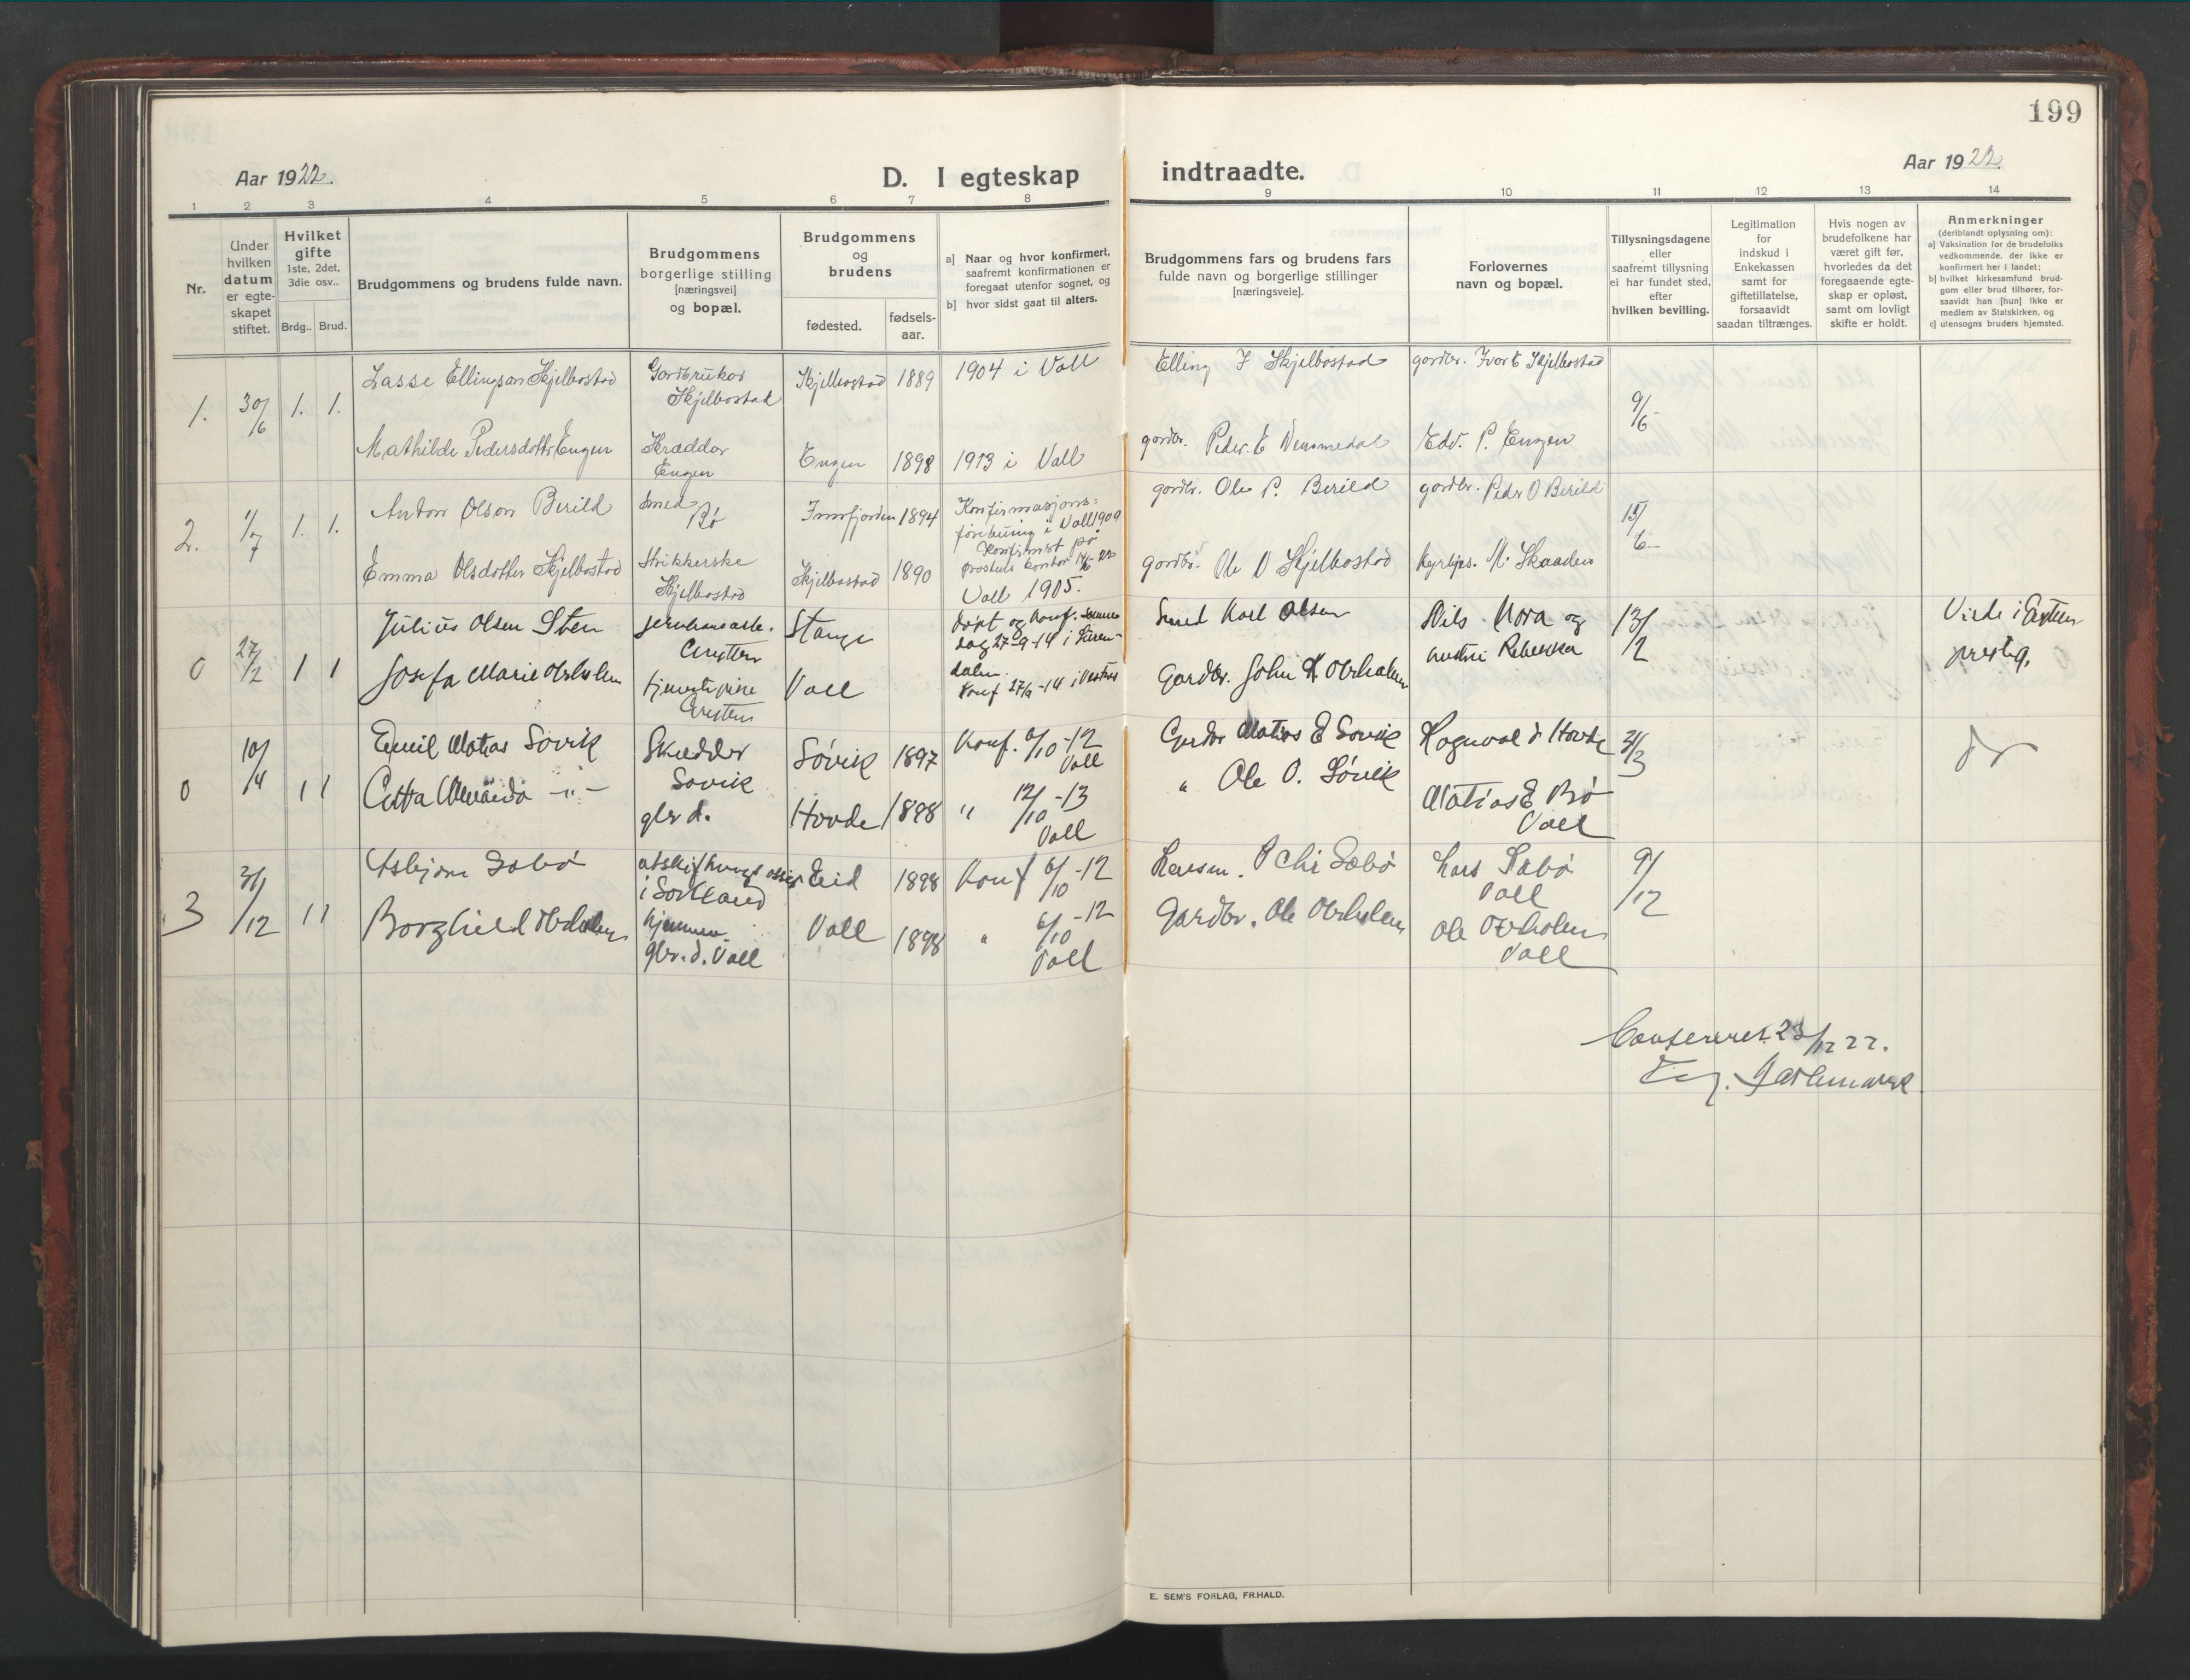 199
Aar 1922.
D. I egteskap indtraadte.
Aar 1922.
1 2 3 4 5 6 7 8 9 10 11 12 13 14
Nr.
Under hvilken datum er egteskapet stiftet.
Hvilket gifte
1ste, 2det, 3die osv..
Brdg.. Brud.
Brudgommens og brudens fulde navn.
Brudgommens borgerlige stilling [næringsvei] og bopæl.
Brudgommens og brudens
fødested.
fødsels-aar.
a] Naar og hvor konfirmert, saafremt konfirmationen er foregaat utenfor sognet, og
b] hvor sidst gaat til alters.
Brudgommens fars og brudens fars fulde navn og borgerlige stillinger [næringsveie].
Forlovernes navn og bopæl.
Tillysningsdagene eller saafremt tillysning ei har fundet sted, efter hvilken bevilling.
Legitimation for indskud i Enkekassen samt for giftetillatelse, forsaavidt saadan tiltrænges.
Hvis nogen av brudefolkene har været gift før, hvorledes da det foregaaende egteskap er opløst, samt om lovligt skifte er holdt.
Anmerkninger
(deriblandt oplysning om):
a] Vaksination før de brudefolks vedkommende, der ikke er konfirmert her i landet;
b] hvilket kirkesamfund brudgom eller brud tilhører, forsaavidt han [hun] ikke er medlem av Statskirken, og
c] utensogns bruders hjemsted.
1. 30/6 1. 1. Lasse Ellingson Skjelbostad Gardbrukar Skjelbostad Skjelbostad 1889 1904 i Voll Elling I Skjelbostad gardbr. Ivar E Skjelbostad 9/6
Mathilde Pedersdottr Engen Skræddar Engen Engen 1898 1913 i Voll gardbr. Peder E Edv. P. Engen
2. 1/7 1. 1. Anton Olson Berild Smed Bø Innfjorden 1894 Konfirmasjons= i Voll 1909 Konfirmert på prostens kontor gardbr. Ole P. Berild gardbr. Pedr O Berild 15/6
Emma Olsdotter Skjelbostad Strikkerske Skjelbostad Skjelbostad 1890 Voll 1905. gardbr. Ole O Skjelbostad M. Skaaden
0 27/2 1 1 Julius Olsen Sten Stange døpt og konf. 27-9-14 i Smed Karl Olsen Nils Mora og 13/2 Viede i
Josefa Marie Overholm tjenestepike Voll Konf 27/9-14 i Gardbr. John K Overholm Rebekka prestg.
0 10/4 1 1 Emil Matias Sovik Skredder Sovik Søvik 1897 Konf. 6/10-12 Voll Gardbr Matias E Sovik Hovde
-"- gbr d. Hovde 1898 " 12/10-13 Voll " Ole O. Søvik Matias E Bø Voll
3 31/12 1 1 Asbjørn Sæbø Eid 1898 Konf 6/10-12 Sæbø Lars Sæbø Voll 9/12
Borghild Overholm hjemme gbr. d. Voll Voll 1898 " 6/10-12 Voll Gardbr. Ole Overholm Ole Overholm Voll
Confereret 23/12 22.
E. SEM'S FORLAG, FR.HALD.